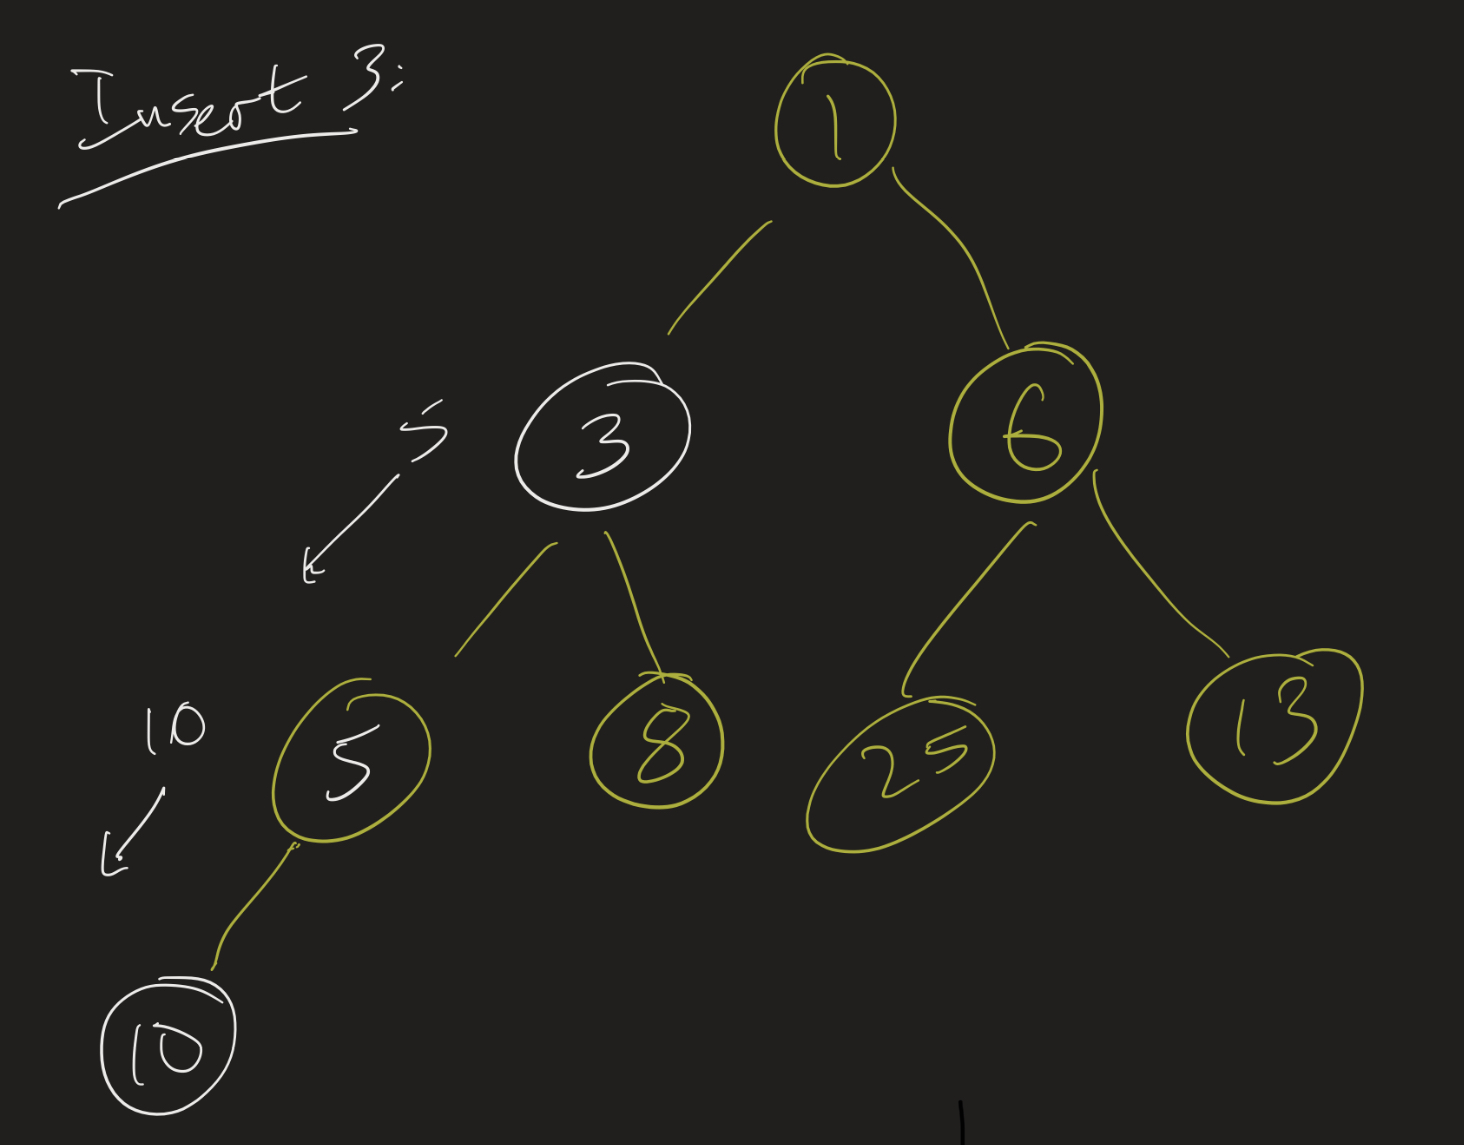 Insert 3:
1
5
3
6
10
5
8
25
13
10